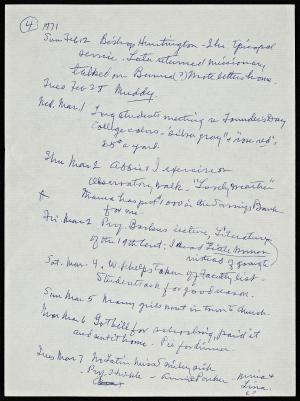 4
1871
Sun Feb 12 Bishop Huntington - The Episcopal
service. Later returned missionary
talked on Burma (?) Wrote letters home.
Tues Feb 28 Muddy
Wed. Mar 1 Long students meeting re Founder's Day
College colors - "silver gray" & "rose red",
25¢ a yard.
Thu Mar 2 Abbie & I exercise on
Observatory walk. "Lovely weather"
Mama has put $1000 in the Savings Bank
for me.
Fri. Mar 3 Prof. Backus lecture, Literature
of the 19th Cent. I read Little Women
instead of going
Sat. Mar. 4. W. Phelps taken off faculty list -
Students ask for good reason.
Sun Mar 5 Many girls went in town to church
Mon Mar 6 Got bill for schooling, paid it
and sent it home. Pie for dinner.
Tues Mar 7 No Latin Miss is sick
Prof. - Annie Parker. Minnie &
Lina